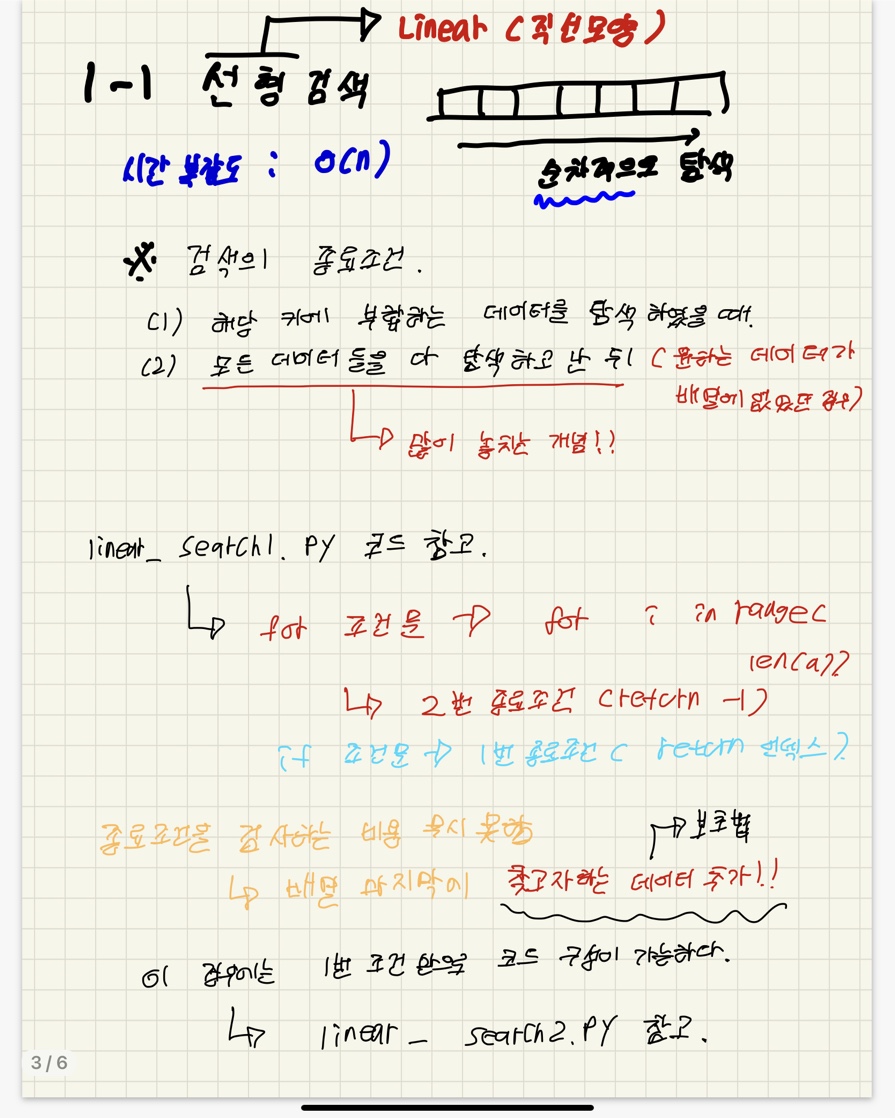 Linear (직선모양)
1-1 선형 검색
시간 복잡도 : O(n)
순차적으로 탐색
※ 검색의 종료조건.
(1) 해당 키에 부합하는 데이터를 탐색 하였을 때.
(2) 모든 데이터 들을 다 탐색하고 난 뒤 (원하는 데이터가
배열에 없었던 경우)
많이 놓치는 개념!!
linear_ search1. PY 코드 참고.
for 조건문 → for i in range(
len(a))
2번 종료조건 (return -1)
if 조건문 → 1번 종료조건 ( return 인덱스)
종료조건을 검사하는 비용 무시 못함
보초법
배열 마지막에 찾고자하는 데이터 추가!!
이 경우에는 1번 조건 만으로 코드 구성이 가능하다.
linear _ search2.PY 참고.
3/6